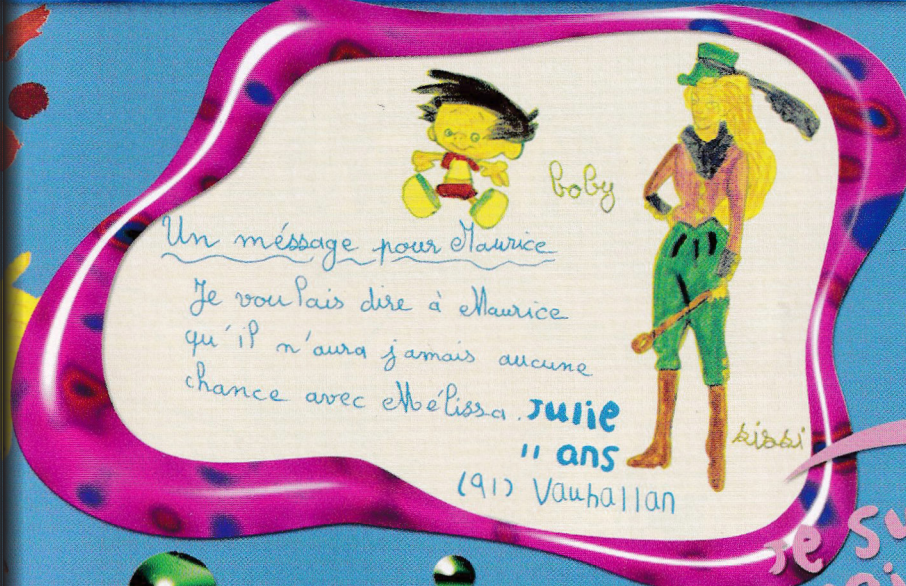 boby
Un méssage pour Maurice
Je voulais dire à Maurice
qu'il n'aura jamais aucune
chance avec Mélissa. Julie
11 ans
(91) Vauhallan
sissi
Je Su